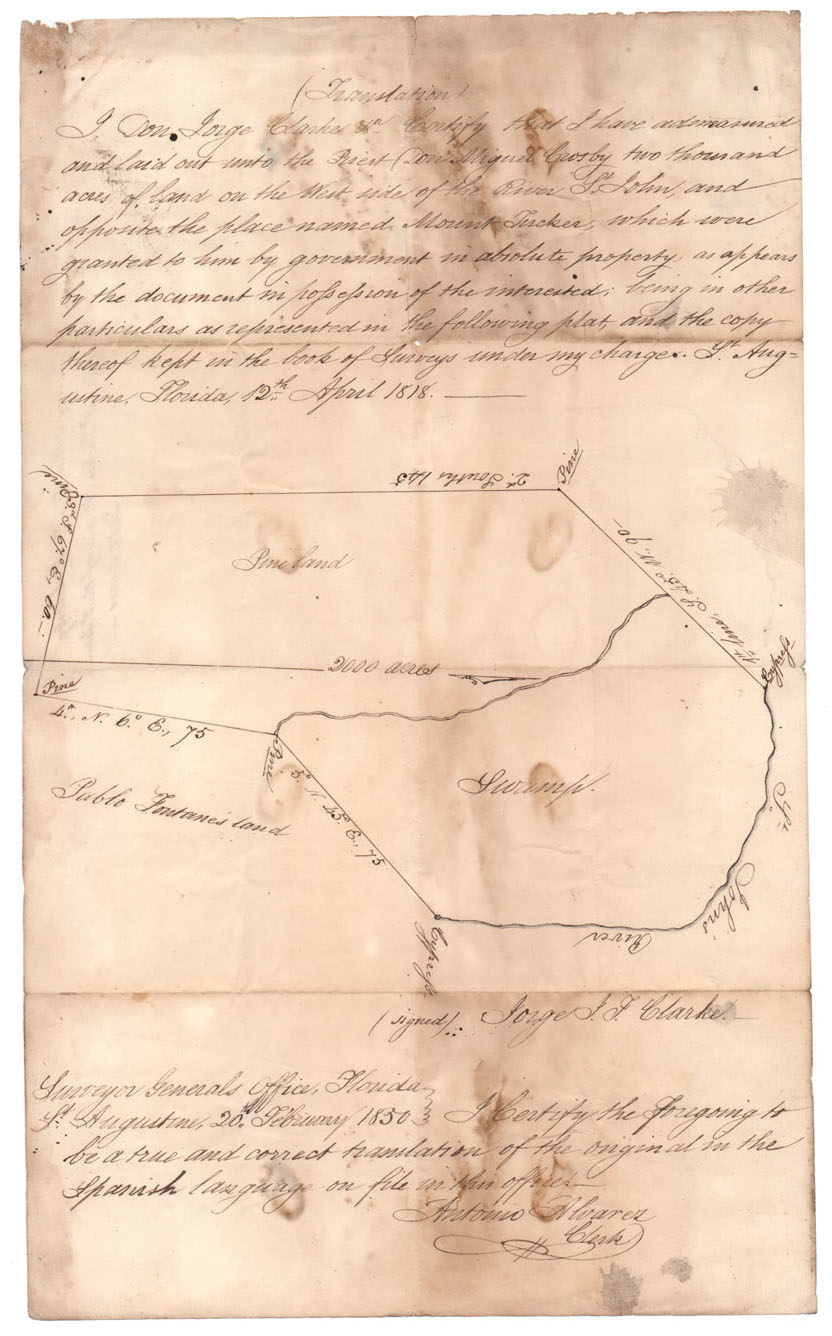 (Translation)
I, Don Jorge Clarke &ca Certify that I have admeasured
and laid out unto the Priest Don Miguel Crosby two thousand
acres of land on the West side of the River St. John, and
opposite the place named Mount Tucker, which were
granted to him by government in absolute property, as appears
by the document in possession of the interested; being in other
particulars as represented in the following plat, and the copy
thereof kept in the book of Surveys under my charge. St. Aug=
ustine, Florida, 12th April 1818.
Pine
2d. South 145
Pine
3rd S. 67° E.,
Pine land
1st line, S. 45° W. 90
2000 acres
Cypress
Pine
4th, N. 6° E., 75
Pine
5th N. 45° E., 75
Swamp.
Pablo Fontane's land
St.
John's
River
Cypress
(signed) Jorge J. F. Clarke.
Surveyor Generals Office, Florida
St. Augustine, 20th February 1850 } I Certify the foregoing to
be a true and correct translation of the original in the
Spanish language on file in this office.
Antonio Alvarez
Clerk